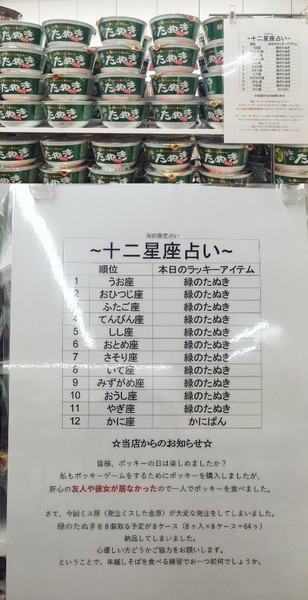 たぬき
~十二星座占い~
当店限定占い
~十二星座占い~
順位 本日のラッキーアイテム
1 うお座 緑のたぬき
2 おひつじ座 緑のたぬき
3 ふたご座 緑のたぬき
4 てんびん座 緑のたぬき
5 しし座 緑のたぬき
6 おとめ座 緑のたぬき
7 さそり座 緑のたぬき
8 いて座 緑のたぬき
9 みずがめ座 緑のたぬき
10 おうし座 緑のたぬき
11 やぎ座 緑のたぬき
12 かに座 かにぱん
☆当店からのお知らせ☆
皆様、ポッキーの日は楽しめましたか？
私もポッキーゲームをするためにポッキーを購入しましたが、
肝心の友人や彼女が居なかったので一人でポッキーを食べました。
さて、今回ミス原（発注ミスした金原）が大変な発注をしてしまいました。
緑のたぬきを8個取る予定が8ケース（8ヶ入×8ケース＝64ヶ）
納品してしまいました。
心優しい方どうかご協力をお願いします。
ということで、年越しそばを食べる練習でお一つ如何でしょうか。